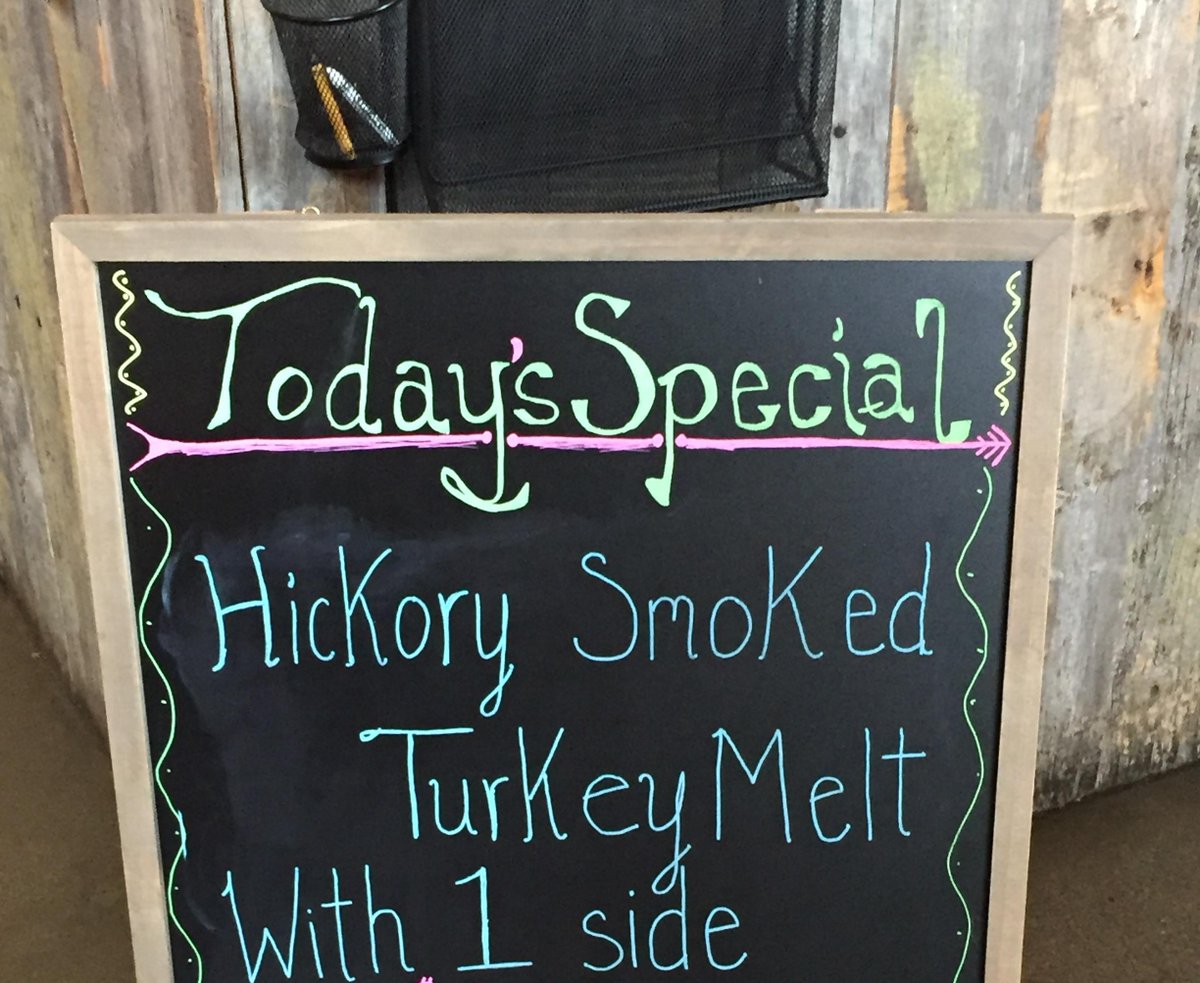 Today's Special
Hickory Smoked
Turkey Melt
With 1 side